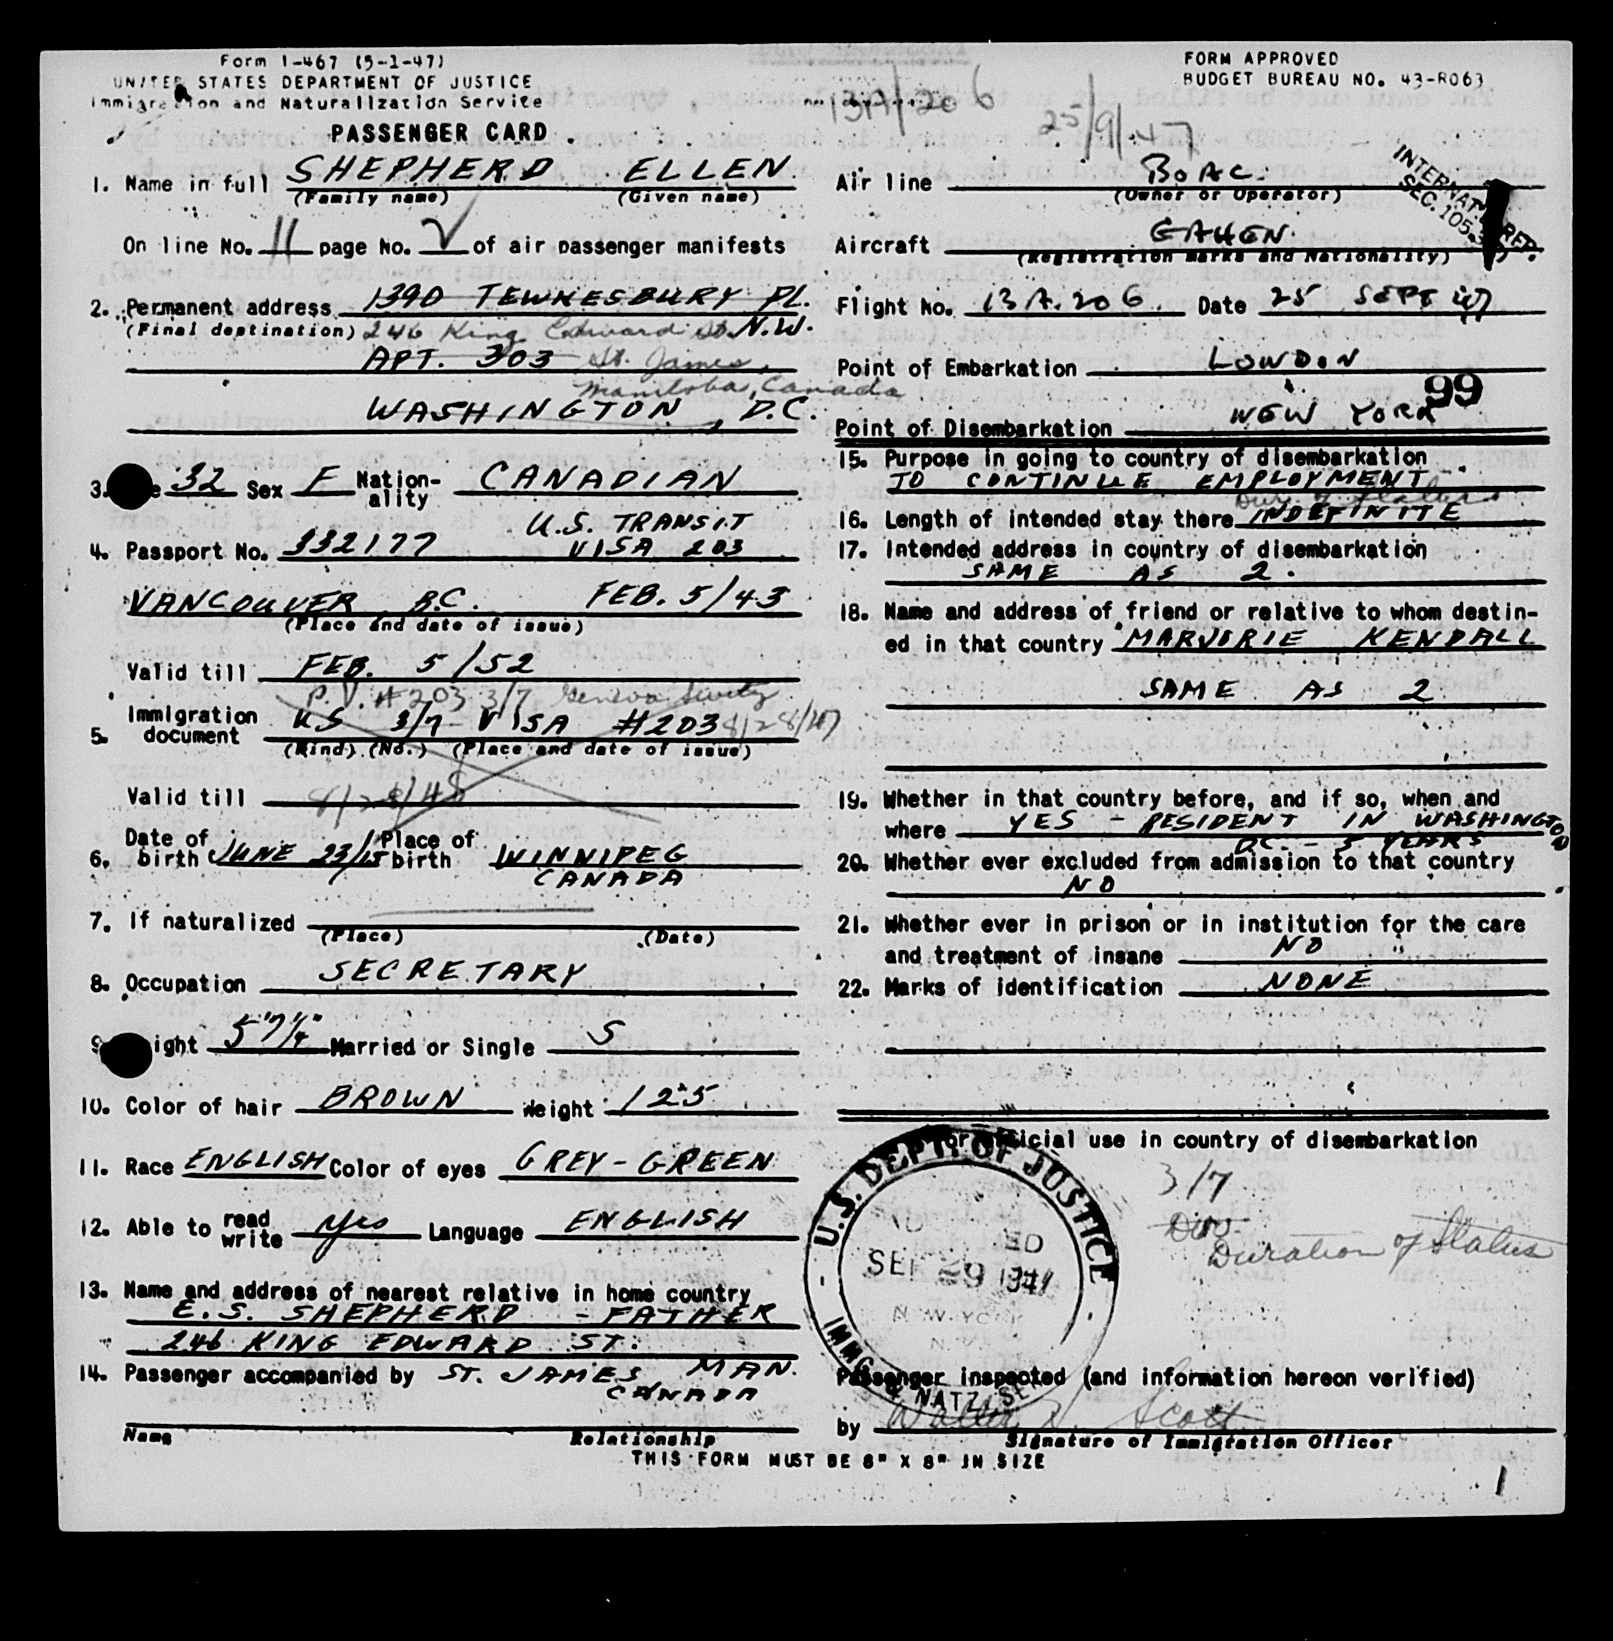 Form I-467 (5-1-47)
UNITED STATES DEPARTMENT OF JUSTICE
Immigration and Naturalization Service
PASSENGER CARD
FORM APPROVED
BUDGET BUREAU NO. 43-R063
BA/206
25/9/47
1. Name in full SHEPHERD ELLEN
(Family name) (Given name)
On line No. 11 page No. of air passenger manifests
2. Permanent address 1390 TEWKESBURY PL.
(Final destination) 246 King Edward St. N.W.
APT. 303 St. James,
Manitoba, Canada
WASHINGTON, D.C.
3. 32 Sex F Nation-ality CANADIAN
U.S. TRANSIT
4. Passport No. 332177 VISA 203
VANCOUVER B.C. FEB. 5/43
(Place and date of issue)
Valid till FEB. 5/52
P.V. #203 3/7, Geneva
5. Immigration document U.S 3/7 VISA #203 8/28/47
(Kind) (No.) (Place and date of issue)
Valid till 8/28/48
6. Date of birth JUNE 23/15 Place of birth WINNIPEG
CANADA
7. If naturalized
(Place) (Date)
8. Occupation SECRETARY
9. ight 5'7¼" Married or Single S
10. Color of hair BROWN Weight 125
11. Race ENGLISH Color of eyes GREY-GREEN
12. Able to read write Yes Language ENGLISH
13. Name and address of nearest relative in home country
E.S. SHEPHERD - FATHER
246 KING EDWARD ST.
14. Passenger accompanied by ST. JAMES MAN.
CANADA
Name Relationship
Air line BOAC.
(Owner or Operator)
INTERNAT.
SEC. 105.
Aircraft GAHEN.
(Registration marks and Nationality)
Flight No. BA.206. Date 25 SEPT 47
Point of Embarkation LONDON
99
Point of Disembarkation NEW YORK
15. Purpose in going to country of disembarkation
TO CONTINUE EMPLOYMENT
Dur. of Status
16. Length of intended stay there INDEFINITE
17. Intended address in country of disembarkation
SAME AS 2.
18. Name and address of friend or relative to whom destin-
ed in that country MARJORIE KENDALL
SAME AS 2
19. Whether in that country before, and if so, when and
where YES - RESIDENT IN WASHINGTON
DC. - 5 YEARS
20. Whether ever excluded from admission to that country
NO
21. Whether ever in prison or in institution for the care
and treatment of insane NO
22. Marks of identification NONE
For official use in country of disembarkation
3/7
Duration of Status
U.S. DEPT. OF JUSTICE
SEP 29 1947
NEW YORK
N.Y.
IMMG. & NATZ. SE
Passenger inspected (and information hereon verified)
by Walter Scott
Signature of Immigration Officer
THIS FORM MUST BE 8" X 8" IN SIZE
1